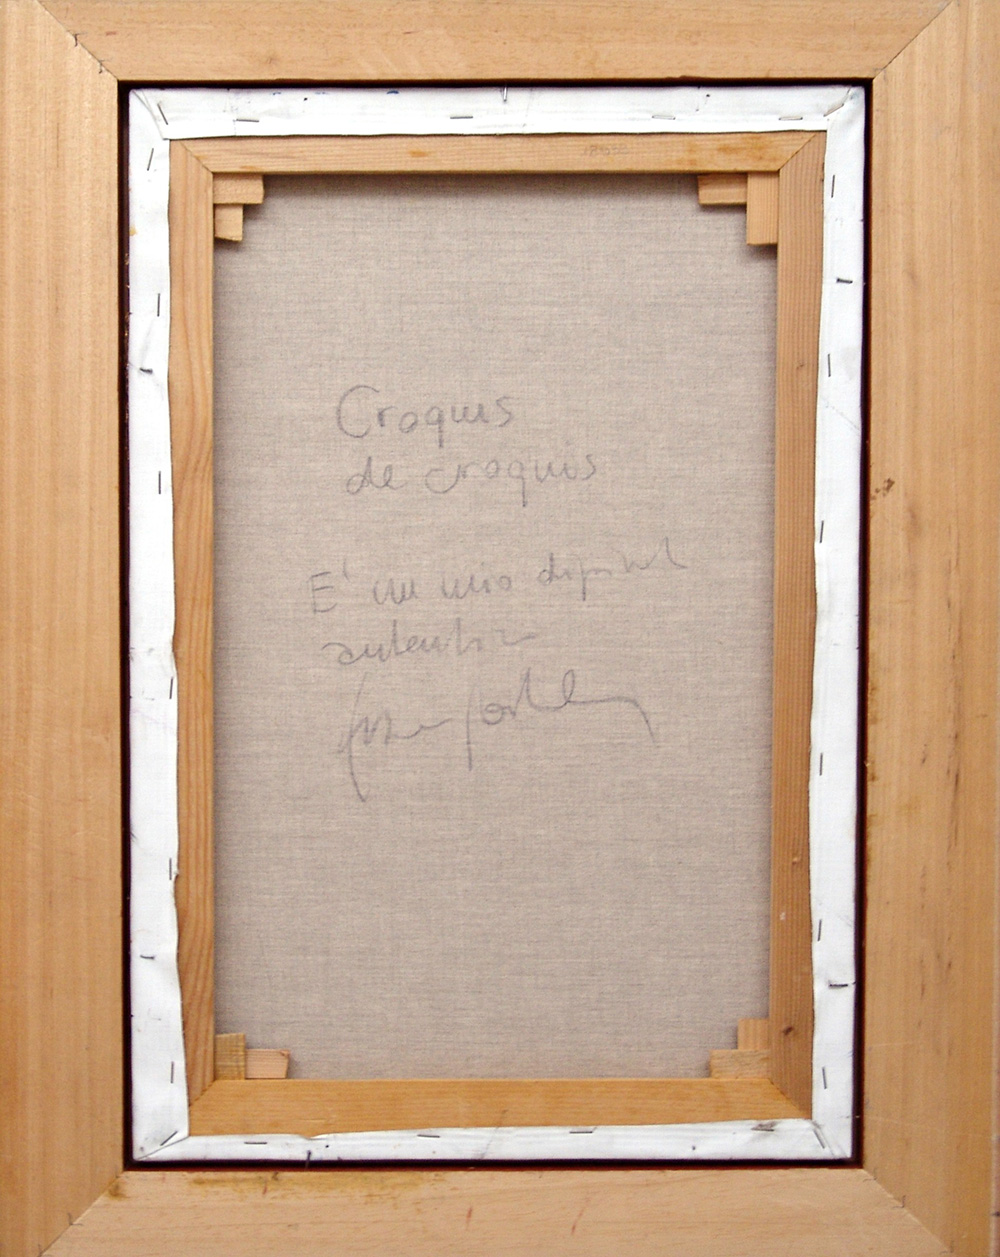 Croquis
de croquis
E' un mio dipinto
autentico